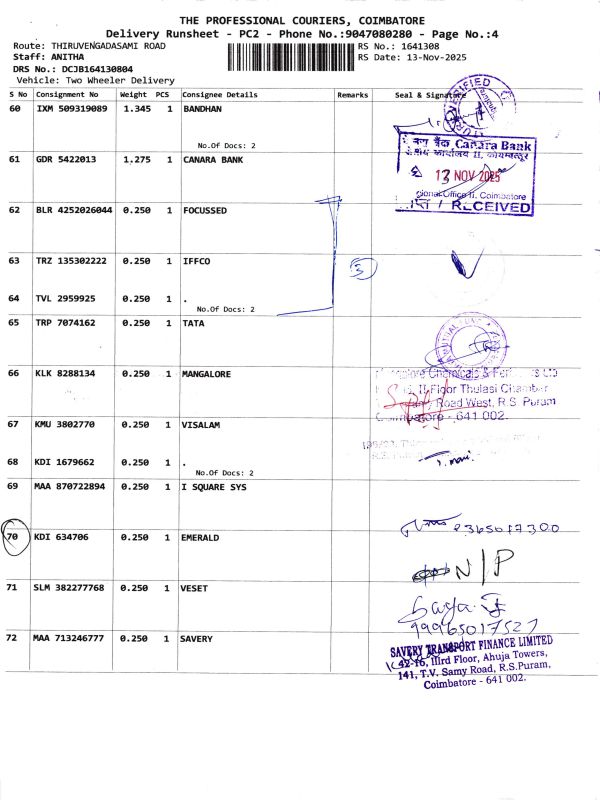 THE PROFESSIONAL COURIERS, COIMBATORE
Delivery Runsheet - PC2 - Phone No.:9047080280 - Page No.:4
Route: THIRUVENGADASAMI ROAD
RS No.: 1641308
Staff: ANITHA
RS Date: 13-Nov-2025
DRS No.: DCJB164130804
Vehicle: Two Wheeler Delivery
S No Consignment No Weight PCS Consignee Details Remarks Seal & Signature
60 IXM 509319089 1.345 1 BANDHAN
VERIFIED
No.Of Docs: 2
केनरा बैंक Canara Bank
61 GDR 5422013 1.275 1 CANARA BANK
13 NOV 2025
Office II, Coimbatore
/ RECEIVED
62 BLR 4252026044 0.250 1 FOCUSSED
63 TRZ 135302222 0.250 1 IFFCO
3
64 TVL 2959925 0.250 1 .
No.Of Docs: 2
65 TRP 7074162 0.250 1 TATA
MUTUAL FUND
66 KLK 8288134 0.250 1 MANGALORE
Chemicals &
II Floor Thulasi Chamber
Road West, R.S. Puram
Coimbatore - 641 002.
67 KMU 3802770 0.250 1 VISALAM
68 KDI 1679662 0.250 1 .
No.Of Docs: 2
69 MAA 870722894 0.250 1 I SQUARE SYS
70 KDI 634706 0.250 1 EMERALD
N/P
71 SLM 382277768 0.250 1 VESET
72 MAA 713246777 0.250 1 SAVERY
SAVERY TRANSPORT FINANCE LIMITED
IIIrd Floor, Ahuja Towers,
141, T.V. Samy Road, R.S.Puram,
Coimbatore - 641 002.